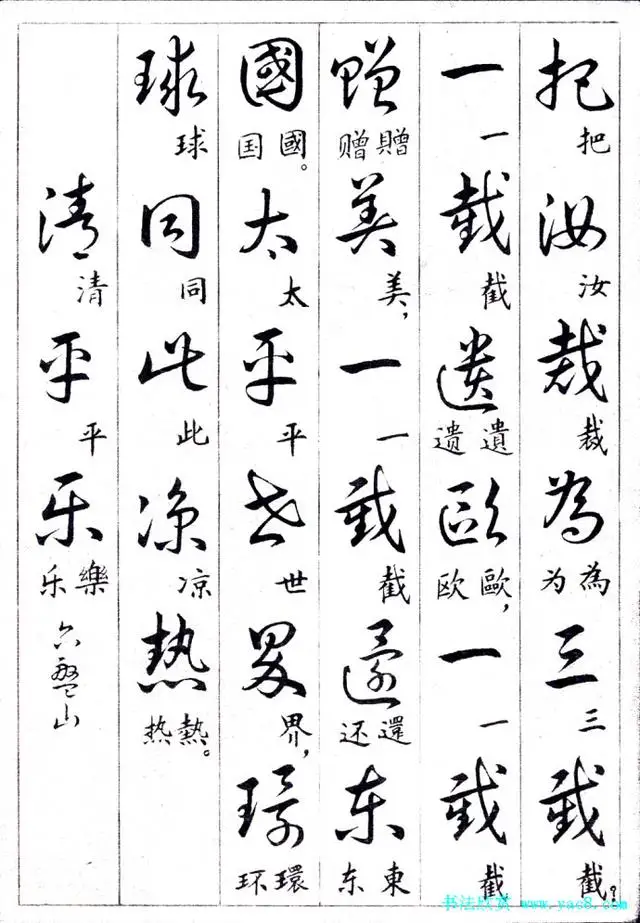 把汝裁為三截
把汝裁为為三截?
一截遺歐一截
一截遗遺欧歐，一截
贈美一截還东
赠贈美，一截还還东東
國太平世界環
国國。太平世界，环環
球同此凉热
球同此凉热熱。
清平乐
清平乐樂
六盤山
书法欣赏 www.yac8.com